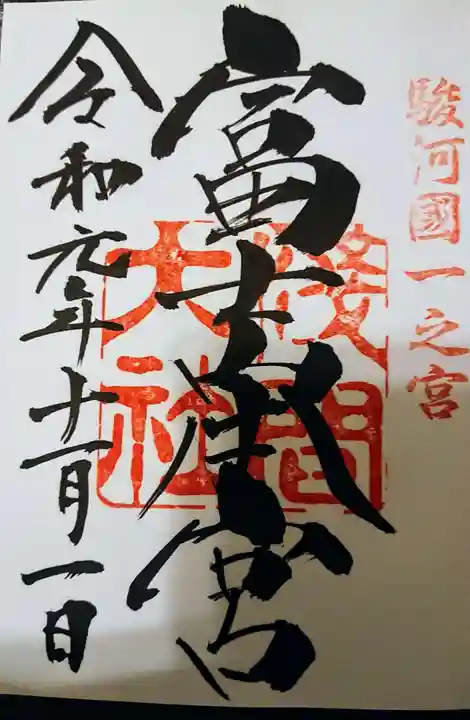 駿河國一之宮
富士本宮
淺間大社
令和元年十一月一日